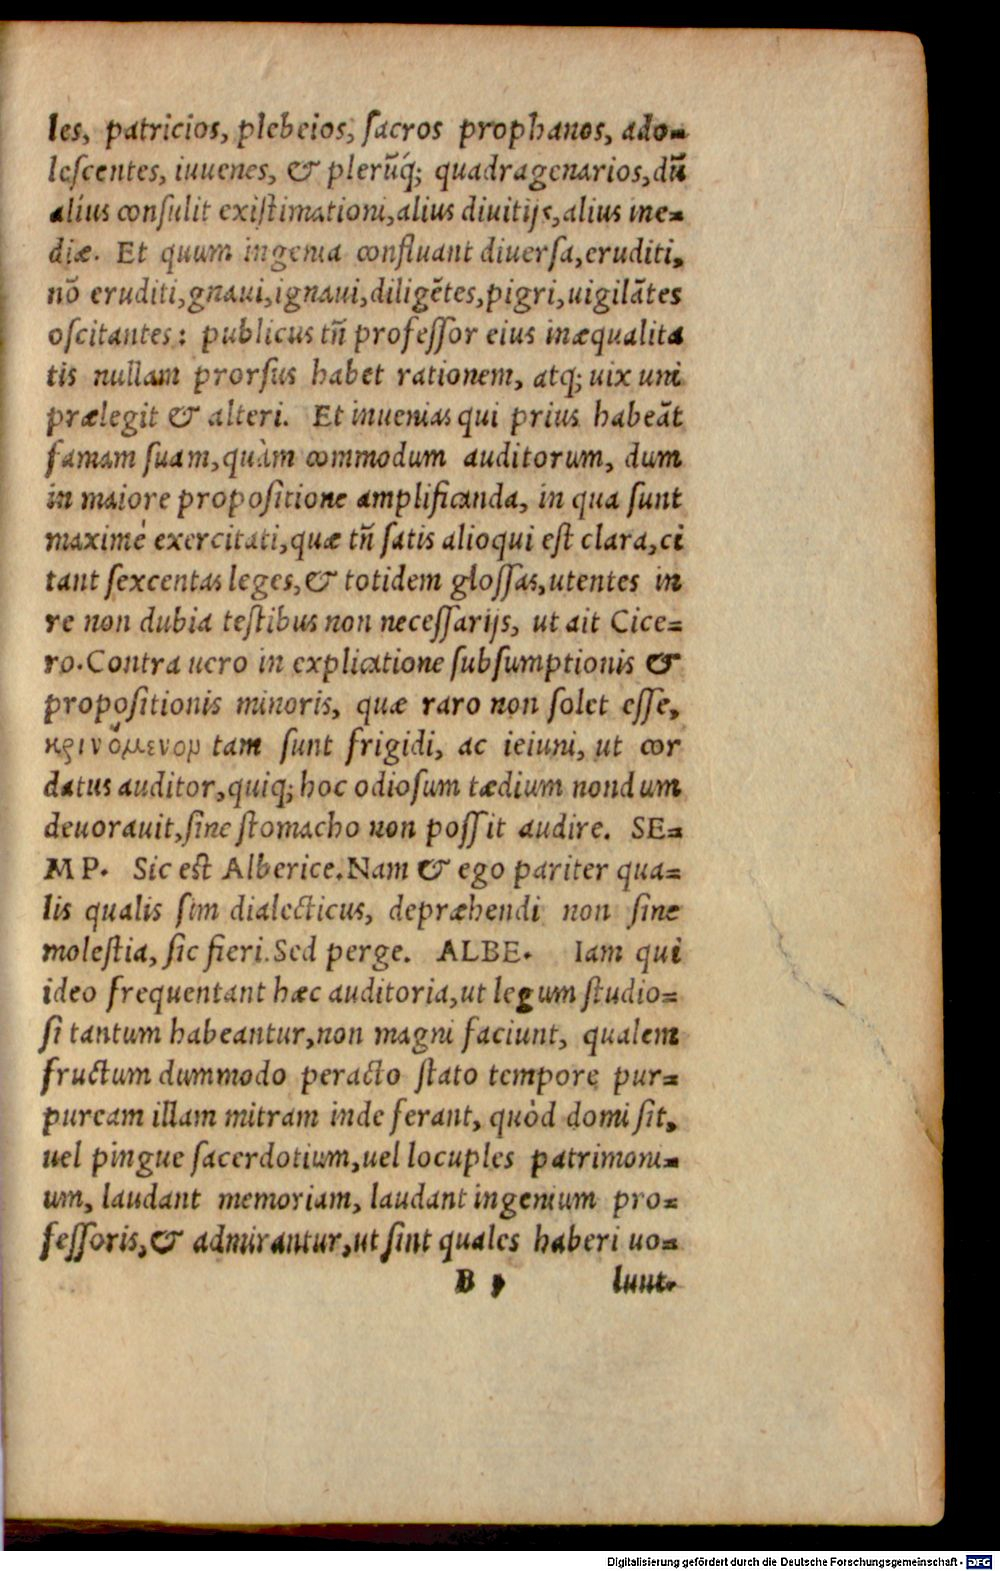 les, patricios, plebeios, sacros prophanos, ado-
lescentes, iuuenes, & plerũq́; quadragenarios, dũ
alius consulit existimationi, alius diuitijs, alius ine-
diæ. Et quum ingenia confluant diuersa, eruditi,
nõ eruditi, gnaui, ignaui, diligẽtes, pigri, uigilãtes
oscitantes: publicus tñ professor eius inæqualita
tis nullam prorsus habet rationem, atq; uix uni
prælegit & alteri. Et inuenias qui prius habeãt
famam suam, quàm commodum auditorum, dum
in maiore propositione amplificanda, in qua sunt
maximè exercitati, quæ tñ satis alioqui est clara, ci
tant sexcentas leges, & totidem glossas, utentes in
re non dubia testibus non necessarijs, ut ait Cice-
ro. Contra uero in explicatione subsumptionis &
propositionis minoris, quæ raro non solet esse,
κρινόμενον tam sunt frigidi, ac ieiuni, ut cor
datus auditor, quiq; hoc odiosum tædium nondum
deuorauit, sine stomacho non possit audire. SE-
MP. Sic est Alberice. Nam & ego pariter qua-
lis qualis sim dialecticus, depræhendi non sine
molestia, sic fieri. Sed perge. ALBE. Iam qui
ideo frequentant hæc auditoria, ut legum studio-
si tantum habeantur, non magni faciunt, qualem
fructum dummodo peracto stato tempore pur-
puream illam mitram inde ferant, quòd domi sit,
uel pingue sacerdotium, uel locuples patrimoni-
um, laudant memoriam, laudant ingenium pro-
fessoris, & admirantur, ut sint quales haberi uo-
B lunt.
Digitalisierung gefördert durch die Deutsche Forschungsgemeinschaft - DFG